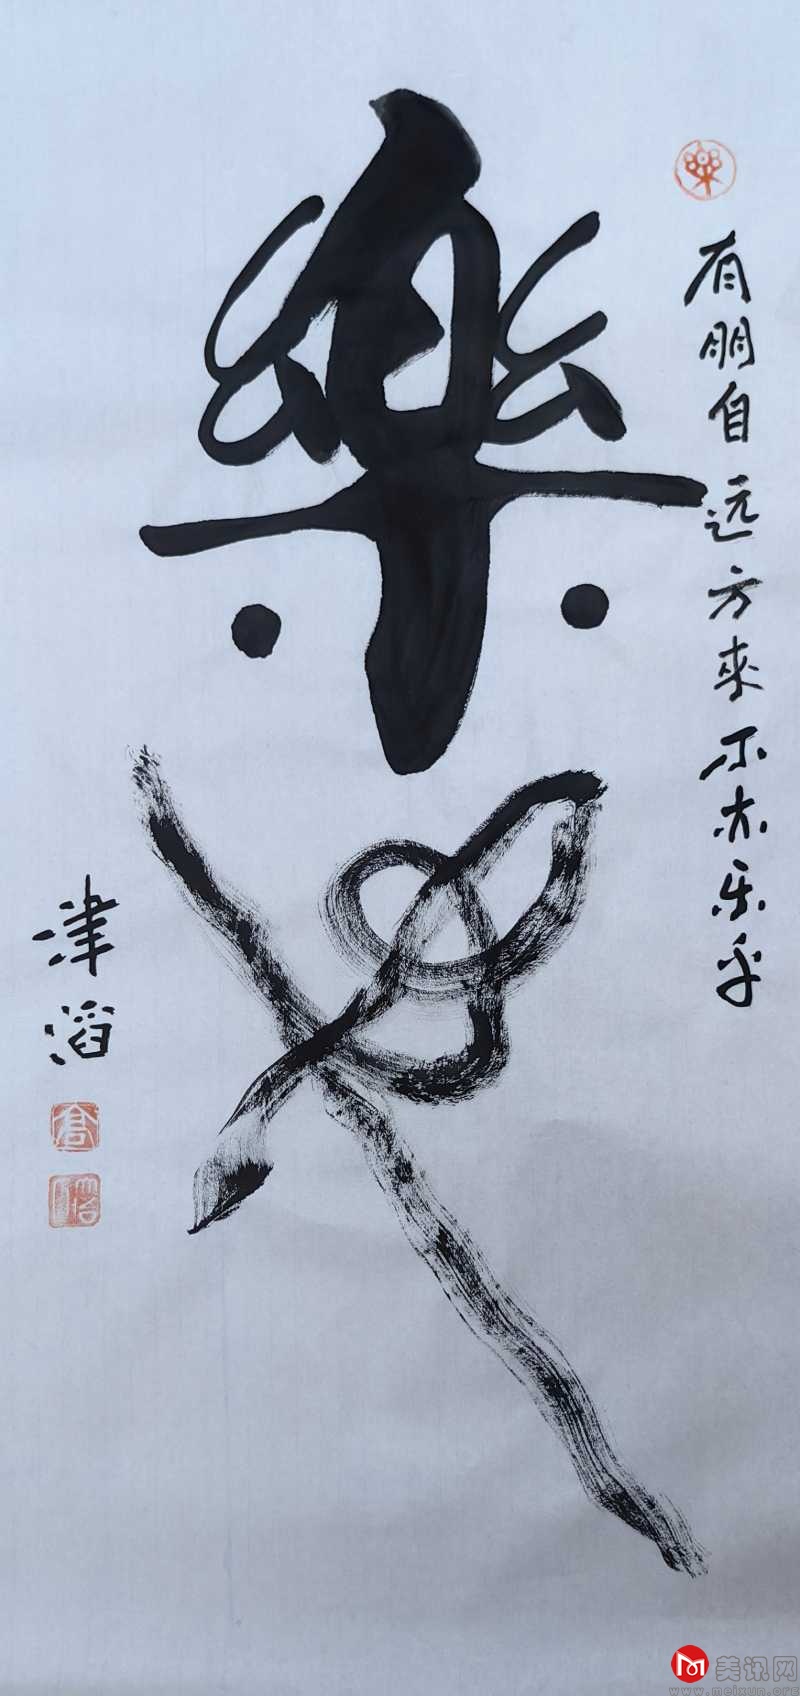 有朋自远方來不亦乐乎
樂
津滔
美讯网
www.meixun.org